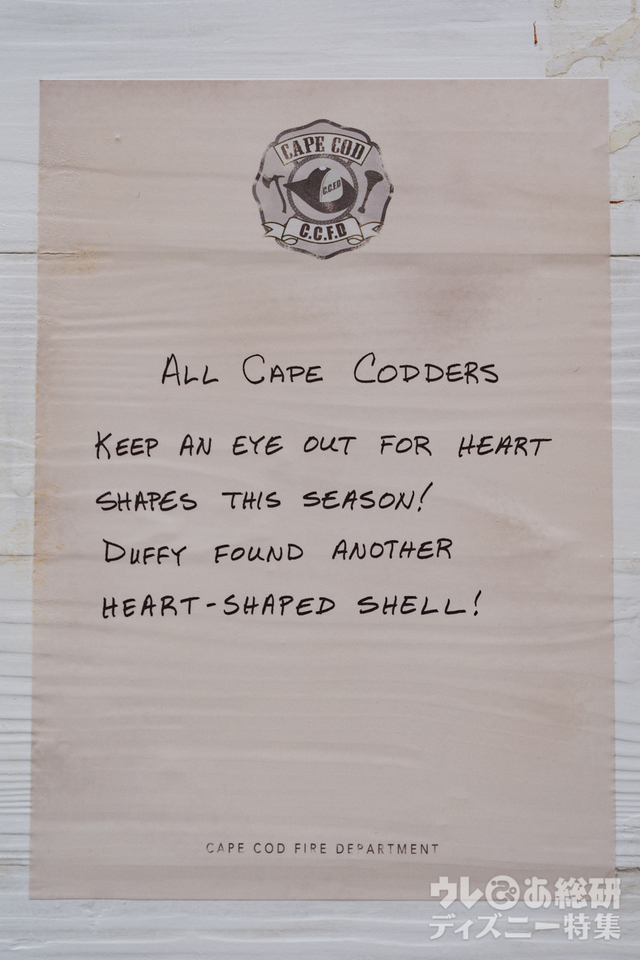 CAPE COD
C.C.F.D
C.C.F.D
ALL CAPE CODDERS
KEEP AN EYE OUT FOR HEART
SHAPES THIS SEASON!
DUFFY FOUND ANOTHER
HEART-SHAPED SHELL!
CAPE COD FIRE DEPARTMENT
ウレぴあ総研
ディズニー特集